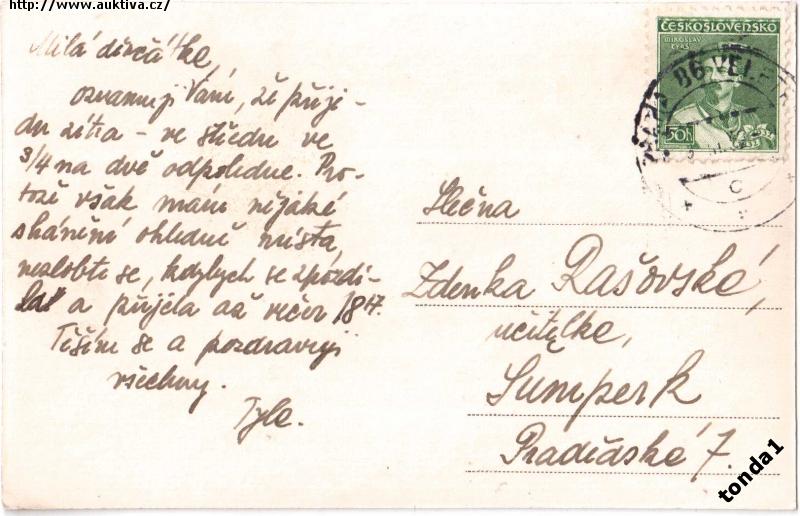 http://www.auktiva.cz/
Milá děvčátke,
oznamuji Vám, že přije-
du zítra – ve středu ve
3/4 na dvě odpoledne. Pro-
tože však mám nějaké
shánění ohledně místa,
nezlobte se, kdybych se zpozdi-
la a přijela až večer 18 17.
Těším se a pozdravuji
všechny.
ČESKOSLOVENSKO
MIROSLAV
TYRŠ
50h
C
Slečna
Zdenka Rašovské,
učitelke,
Šumperk
Pradědské 7.
tonda1